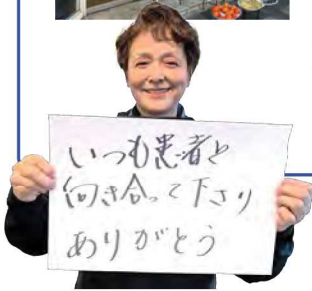 いつも患者と
向き合って下さり
ありがとう